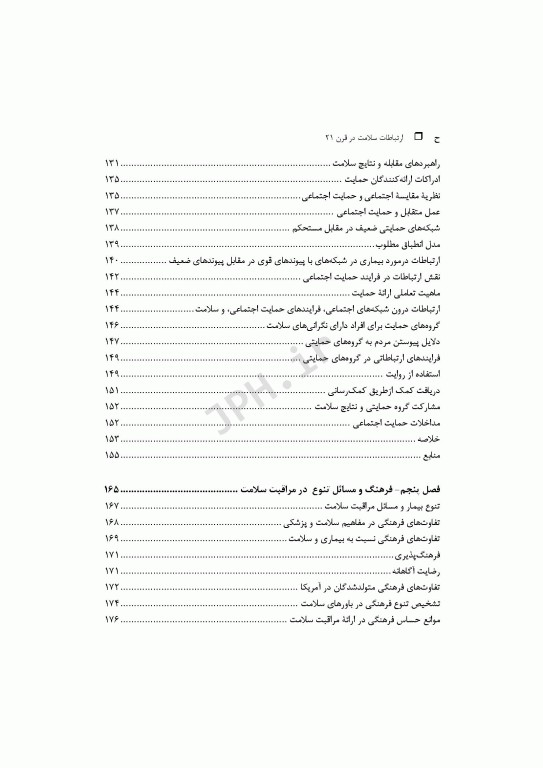 ح ❒ ارتباطات سلامت در قرن ۲۱
راهبردهای مقابله و نتایج سلامت ۱۳۱
ادراکات ارائه‌کنندگان حمایت ۱۳۵
نظریهٔ مقایسهٔ اجتماعی و حمایت اجتماعی ۱۳۵
عمل متقابل و حمایت اجتماعی ۱۳۷
شبکه‌های حمایتی ضعیف در مقابل مستحکم ۱۳۸
مدل انطباق مطلوب ۱۳۹
ارتباطات درمورد بیماری در شبکه‌های با پیوندهای قوی در مقابل پیوندهای ضعیف ۱۴۰
نقش ارتباطات در فرایند حمایت اجتماعی ۱۴۲
ماهیت تعاملی ارائهٔ حمایت ۱۴۴
ارتباطات درون شبکه‌های اجتماعی، فرایندهای حمایت اجتماعی، و سلامت ۱۴۴
گروه‌های حمایت برای افراد دارای نگرانی‌های سلامت ۱۴۶
دلایل پیوستن مردم به گروه‌های حمایتی ۱۴۷
فرایندهای ارتباطاتی در گروه‌های حمایتی ۱۴۹
استفاده از روایت ۱۴۹
دریافت کمک ازطریق کمک‌رسانی ۱۵۱
مشارکت گروه حمایتی و نتایج سلامت ۱۵۲
مداخلات حمایت اجتماعی ۱۵۲
خلاصه ۱۵۳
منابع ۱۵۵
فصل پنجم- فرهنگ و مسائل تنوع در مراقبت سلامت ۱۶۵
تنوع بیمار و مسائل مراقبت سلامت ۱۶۷
تفاوت‌های فرهنگی در مفاهیم سلامت و پزشکی ۱۶۸
تفاوت‌های فرهنگی نسبت به بیماری و سلامت ۱۶۹
فرهنگ‌پذیری ۱۷۱
رضایت آگاهانه ۱۷۱
تفاوت‌های فرهنگی متولدشدگان در آمریکا ۱۷۲
تشخیص تنوع فرهنگی در باورهای سلامت ۱۷۴
موانع حساس فرهنگی در ارائهٔ مراقبت سلامت ۱۷۶
JPH.ir